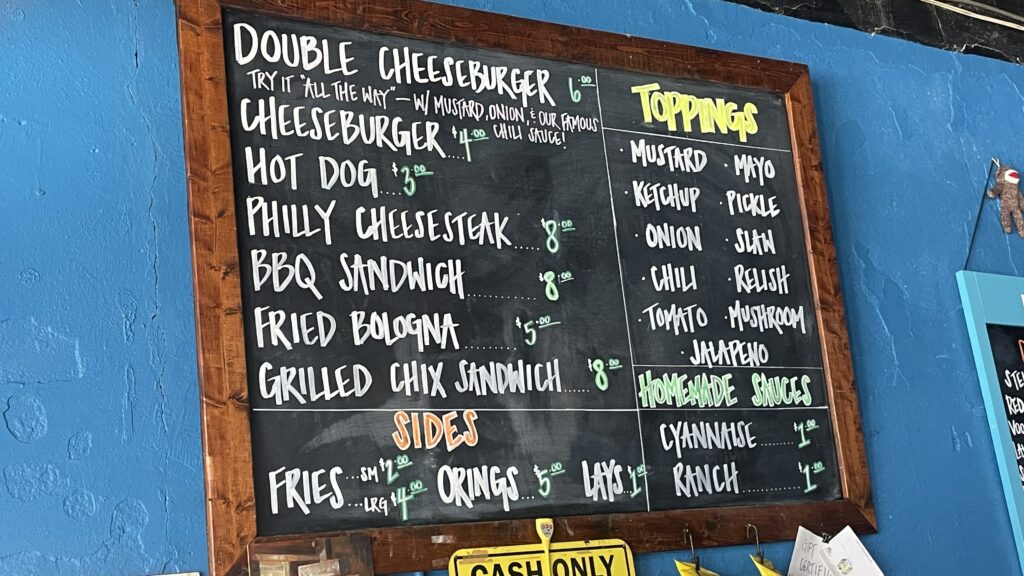 DOUBLE CHEESEBURGER 6.00
TRY IT "ALL THE WAY" - W/ MUSTARD, ONION, & OUR FAMOUS
CHILI SAUCE!
CHEESEBURGER....$4.00
HOT DOG....$3.00
PHILLY CHEESESTEAK....$8.00
BBQ SANDWICH............$8.00
FRIED BOLOGNA..........$5.00
GRILLED CHIX SANDWICH....$8.00
SIDES
FRIES ...SM $2.00
...LRG $4.00
ORINGS...$5.00
LAYS $1.00
TOPPINGS
· MUSTARD · MAYO
· KETCHUP · PICKLE
· ONION · SLAW
· CHILI · RELISH
· TOMATO · MUSHROOM
· JALAPENO
HOMEMADE SAUCES
CYANNAISE........$1.00
RANCH ..............$1.00
CASH ONLY
GIFT